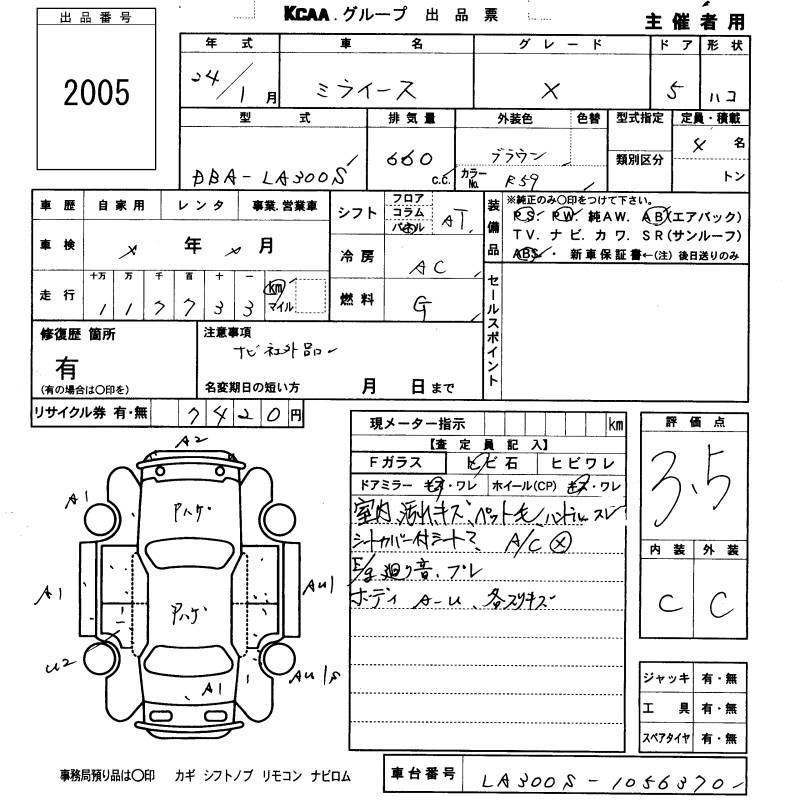 出品番号
2005
KCAA.グループ 出品票
主催者用
年式 車名 グレード ドア 形状
24/1月 ミライース X 5 ハコ
型式 排気量 外装色 色替 型式指定 定員・積載
DBA-LA300S 660 c.c. ブラウン カラーNo. R59 類別区分 4名
トン
車歴 自家用 レンタ 事業.営業車
車検 年 月
走行 十万 万 千 百 十 一 km マイル
1 1 7 7 3 3
シフト フロア コラム パネル AT
冷房 AC
燃料 G
装備品
※純正のみ〇印をつけて下さい。
PS. PW. 純AW. AB(エアバック)
TV. ナビ. カワ. SR(サンルーフ)
ABS・ 新車保証書←(注)後日送りのみ
セールスポイント
修復歴 箇所
有
(有の場合は〇印を)
注意事項
ナビ社外品
名変期日の短い方 月 日まで
リサイクル券 有・無 7420円
現メーター指示 km
【査定員記入】
Fガラス トビ石 ヒビワレ
ドアミラー キズ・ワレ ホイール(CP) キズ・ワレ
室内汚れ、キズ、ペット毛、ハンドルスレ
シートカバー付シートマ、 A/C ⓧ
E/g廻り音、ブレ
ボディ A-U、各スリキズ
評価点
3.5
内装 外装
C C
A2
A1
Pハゲ
A1
AU1
Pハゲ
U2
AU1s
A1
ジャッキ 有・無
工具 有・無
スペアタイヤ 有・無
事務局預り品は〇印 カギ シフトノブ リモコン ナビロム
車台番号 LA300S-1056370